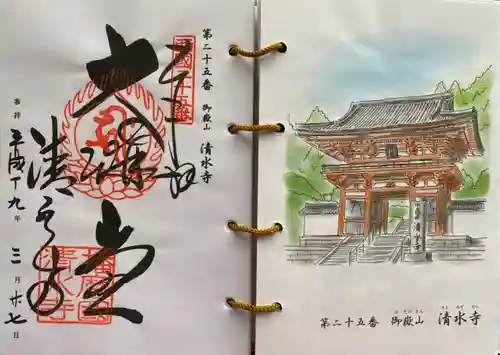 第二十五番 御嶽山 清水寺
大講堂
清水寺
奉拝 平成十九年 三月廿七日
第二十五番 御嶽山 清水寺